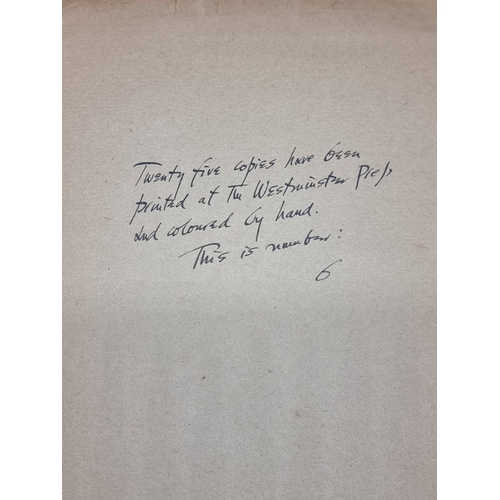 Twenty five copies have been
printed at The Westminster Press
and coloured by hand.
This is number:
6